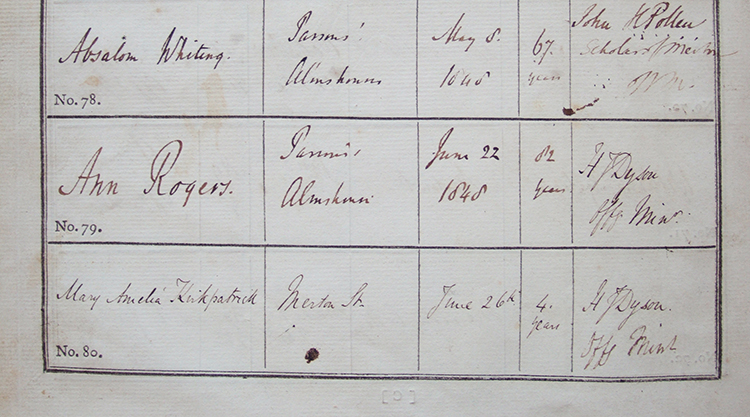 Absalom Whiting.
No. 78.
Parsons'
Almshouses
May 8.
1848
67
years
John H Pollen
Ann Rogers.
No. 79.
Parsons'
Almshouses
June 22
1848
82
years
H J Dyson
Offg Minr.
Mary Amelia Kirkpatrick
No. 80.
Merton St
June 26th
4.
years
H J Dyson.
Offg Minr